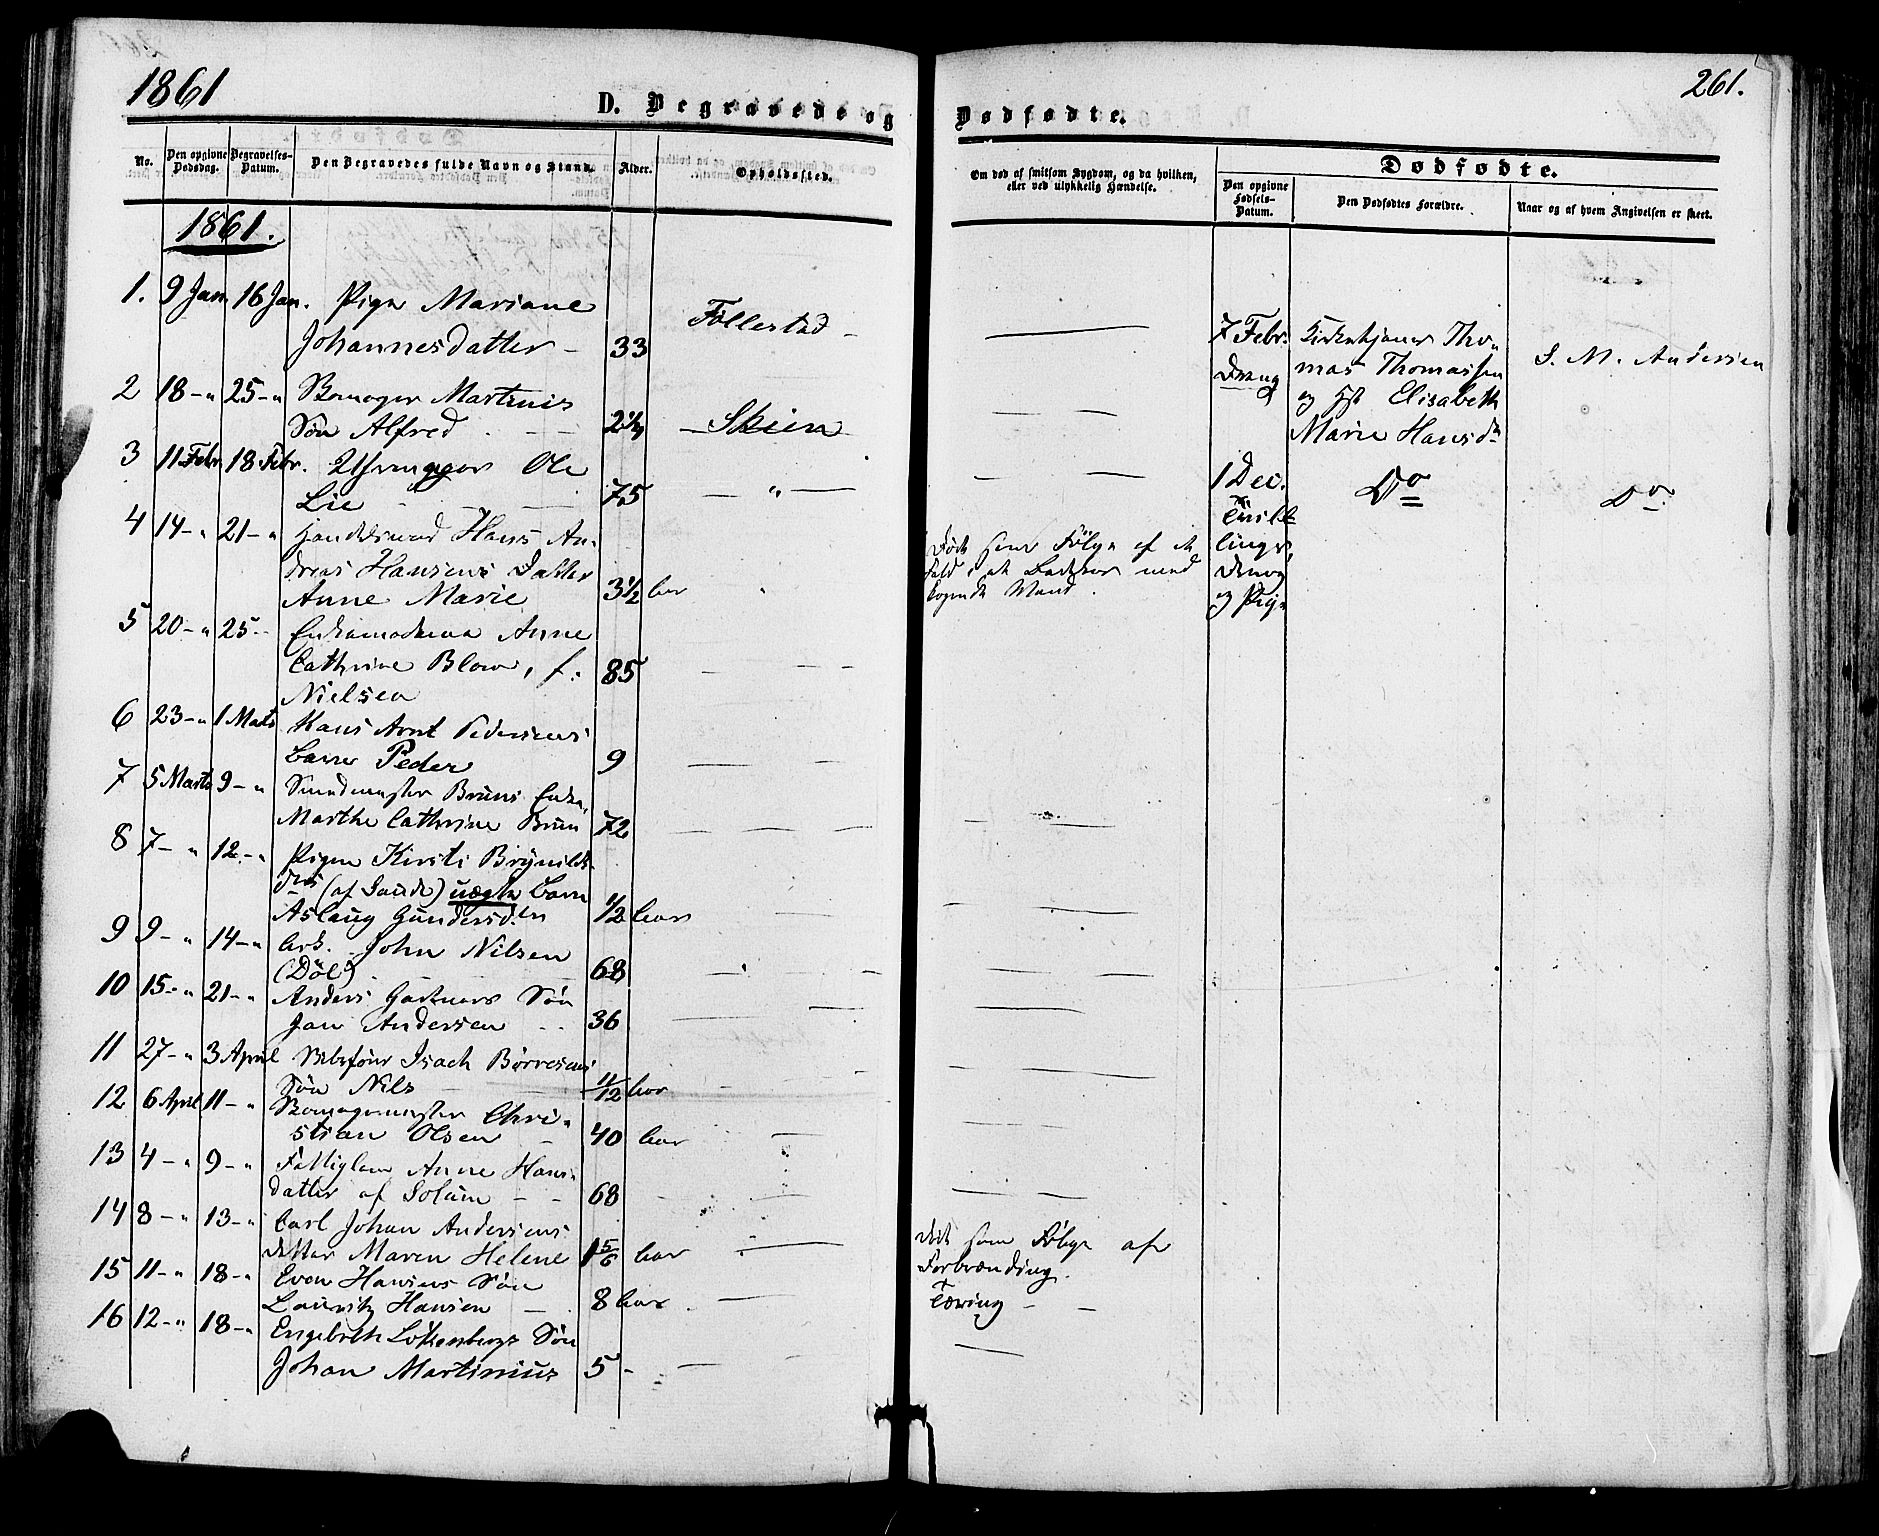 1861
261.
D. Begravede og Dødfødte.
No.
Den opgivne Dødsdag.
Begravelses-Datum.
Den Begravedes fulde Navn og Stand.
Alder.
Opholdssted.
Om død af smitsom Sygdom, og da hvilken,
eller ved ulykkelig Hændelse.
Dødfødte.
Den opgivne Fødsels-Datum.
Den Dødfødtes Forældre.
Naar og af hvem Angivelsen er skeet.
1861.
1. 9 Jan 16 Jan. Pige Mariane
Johannesdatter - 33 Follestad -
2 18 - " 25 - " Martinis
Søn Alfred - - 2 Skien
3 11 Febr 18 Febr. Ole
Lie - - 75 "
4 14 - " 21 - " Hans An-
dreas Hansens Datter
Anne Marie 3 1/2 "
Død som Følge af et
Fald i et med
kogende Vand.
5 20 - " 25 - Anne
Cathrine Blom, f. 85
Nielsen
6 23 - " 1 Marts Hans Arnt Pedersens
Barn Peder 9
7 5 Marts 9 - " Smedmester Bruns Enke,
Marthe Cathrine Brun 72
8 7 - " 12 - " Pigen Kirsti Brynilds-
dtrs (af Saude) uægte Barn
Aslaug Gundersdtr 1/2
9 9 - " 14 - " Arb. John Nilsen
(Döl) 68
10 15 - " 21 - " Anders Gartners Søn
Jan Andersen - - 36
11 27 - " 3 April Isach Börresens
Søn Nils 11/12
12 6 April 11 - " Chri-
stian Olsen 40
13 4 - " 9 - " Fattiglem Anne Hans-
datter af Solum - - 68
14 8 - " 13 - " Carl Johan Andersens
datter Maren Helene 1 5/6
Død som Følge af
Forbrænding.
15 11 - " 18 - " Even Hansens Søn
Lauritz Hansen - 8
Tæring - -
16 12 - " 18 - " Engebreth Søn
Johan Martinius 5 -
7 Febr.
Dreng
Kirketjener Tho-
mas Thomassen
og Elisabeth
Marie Hansdtr
J. M. Andersen
1 Dec.
Tvill-
linger,
Dreng
og Pige
Do
Do